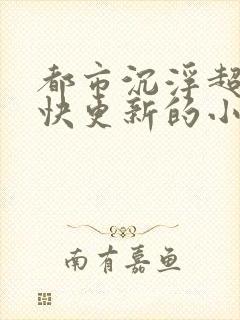 都市沉浮超
快更新的小
南有嘉鱼